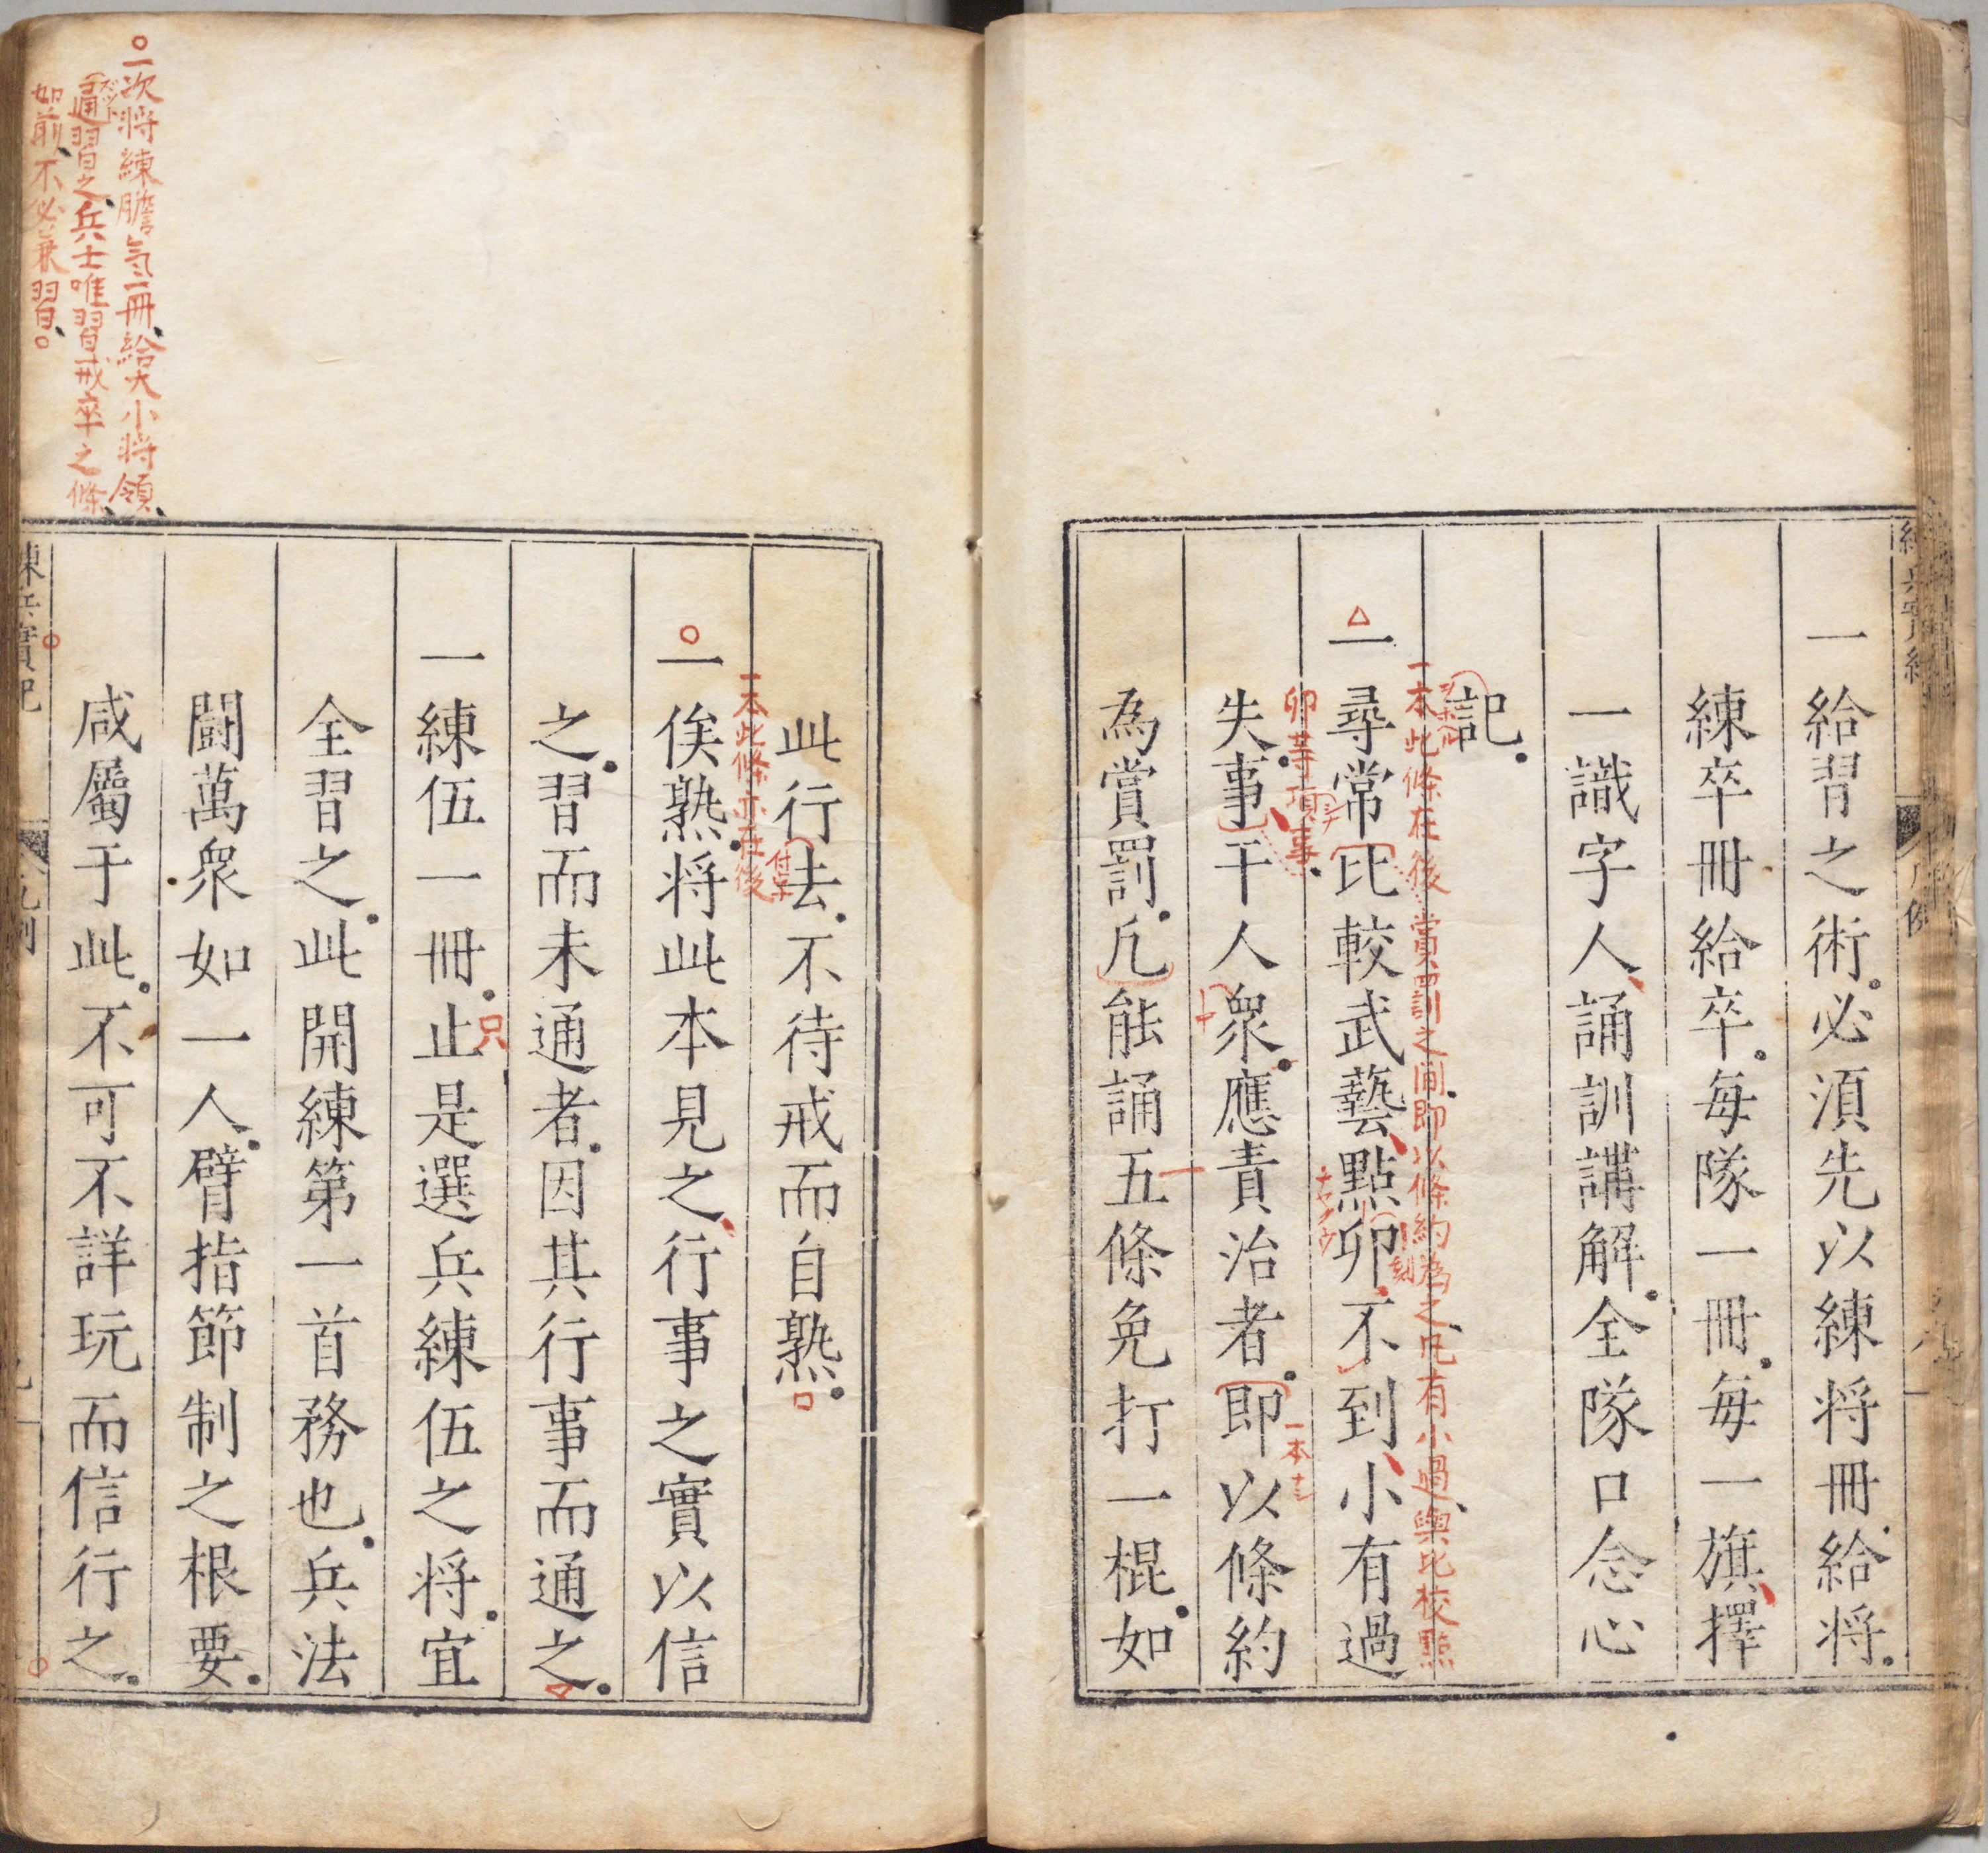 一給習之術必須先以練将冊給将
練卒冊給卒每隊一冊每一旗擇
一識字人誦訓講解全隊口念心
記
一本此條在後賞罰之間即以條約為之凡有小過與比校點
卯等項事
一尋常比較武藝點卯不到小有過
失事干人衆應責治者即以條約
一本ナシ
為賞罰凡能誦五條免打一棍如
此行去不待戒而自熟
一本此條亦在後
一俟熟将此本見之行事之實以信
之習而未通者因其行事而通之
一練伍一冊止是選兵練伍之将宜
只
全習之此開練第一首務也兵法
鬪萬衆如一人臂指節制之根要
咸屬于此不可不詳玩而信行之
一次将練膽氣一冊給大小将領
通習之兵士唯習戒卒之條
如前不必兼習
練兵實紀